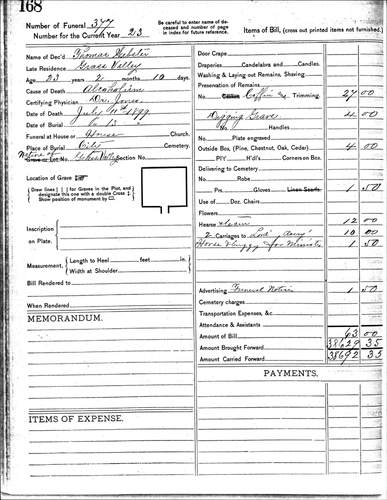 168
Number of Funeral 377
Number for the Current Year 23
Be carefull to enter name of deceased and number of page in index for future reference.
Items of Bill, (cross out printed items not furnished.)
Name of Dec'd Thomas Webster
Late Residence Grass Valley
Age 23 years 2 months 10 days
Cause of Death Alcoholism
Certifying Physician Dr. Jones
Date of Death July 10th 1899
Date of Burial " 11 "
Funeral at House or House Church.
Place of Burial City Cemetery.
Native of Grass Valley
Grave or Lot No. Section No.
Location of Grave
Draw lines | | for Graves in the Plot, and designate this one with a double Cross ‡. Show position of monument by □.
Inscription on Plate.
Measurement. Length to Heel feet in.
Width at Shoulder
Bill Rendered to
When Rendered
MEMORANDUM.
ITEMS OF EXPENSE.
Door Crape
Draperies Candelabra and Candles.
Washing & Laying out Remains, Shaving
Preservation of Remains
No. Casket Coffin & Trimming. 27 00
Digging Grave 4 00
No. Handles
No. Plate engraved
Outside Box, (Pine, Chestnut, Oak, Cedar) 4 00
P|Y H'dl's Corners on Box.
Delivering to Cemetery
No. Robe
Prs. Gloves Linen Scarfs. 1 50
Use of Doz. Chairs
Flowers
Hearse & team 12 00
2 Carriages to 10 00
Horse & buggy for Minister 1 50
Advertising Funeral Notice 1 50
Cemetery charges
Transportation Expenses, &c
Attendance & Assistants
Amount of Bill 63 00
Amount Brought Forward 38629 35
Amount Carried Forward 38692 35
PAYMENTS.